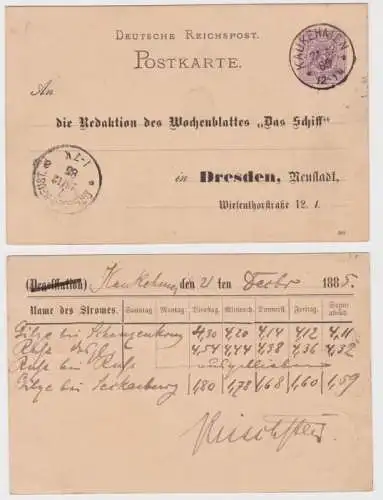 DEUTSCHE REICHSPOST.
POSTKARTE.
KAUKEHMEN
12-1N
An
die Redaktion des Wochenblattes „Das Schiff"
in Dresden, Neustadt,
Wiesenthorstraße 12. I.
(Prostitution) Kaukehmen, den 21 ten Decbr 1885.
Name des Stromes. Sonntag. Montag. Dienstag. Mittwoch. Donnerst. Freitag. Sonnabend.
Gilge bei 4,30 4,20 4,14 4,12 4,11
4,54 4,44 4,38 4,36 4,32
Russ bei Russ ausgeblieben
Gilge bei Seckenburg 1,80 1,78 1,68 1,60 1,59